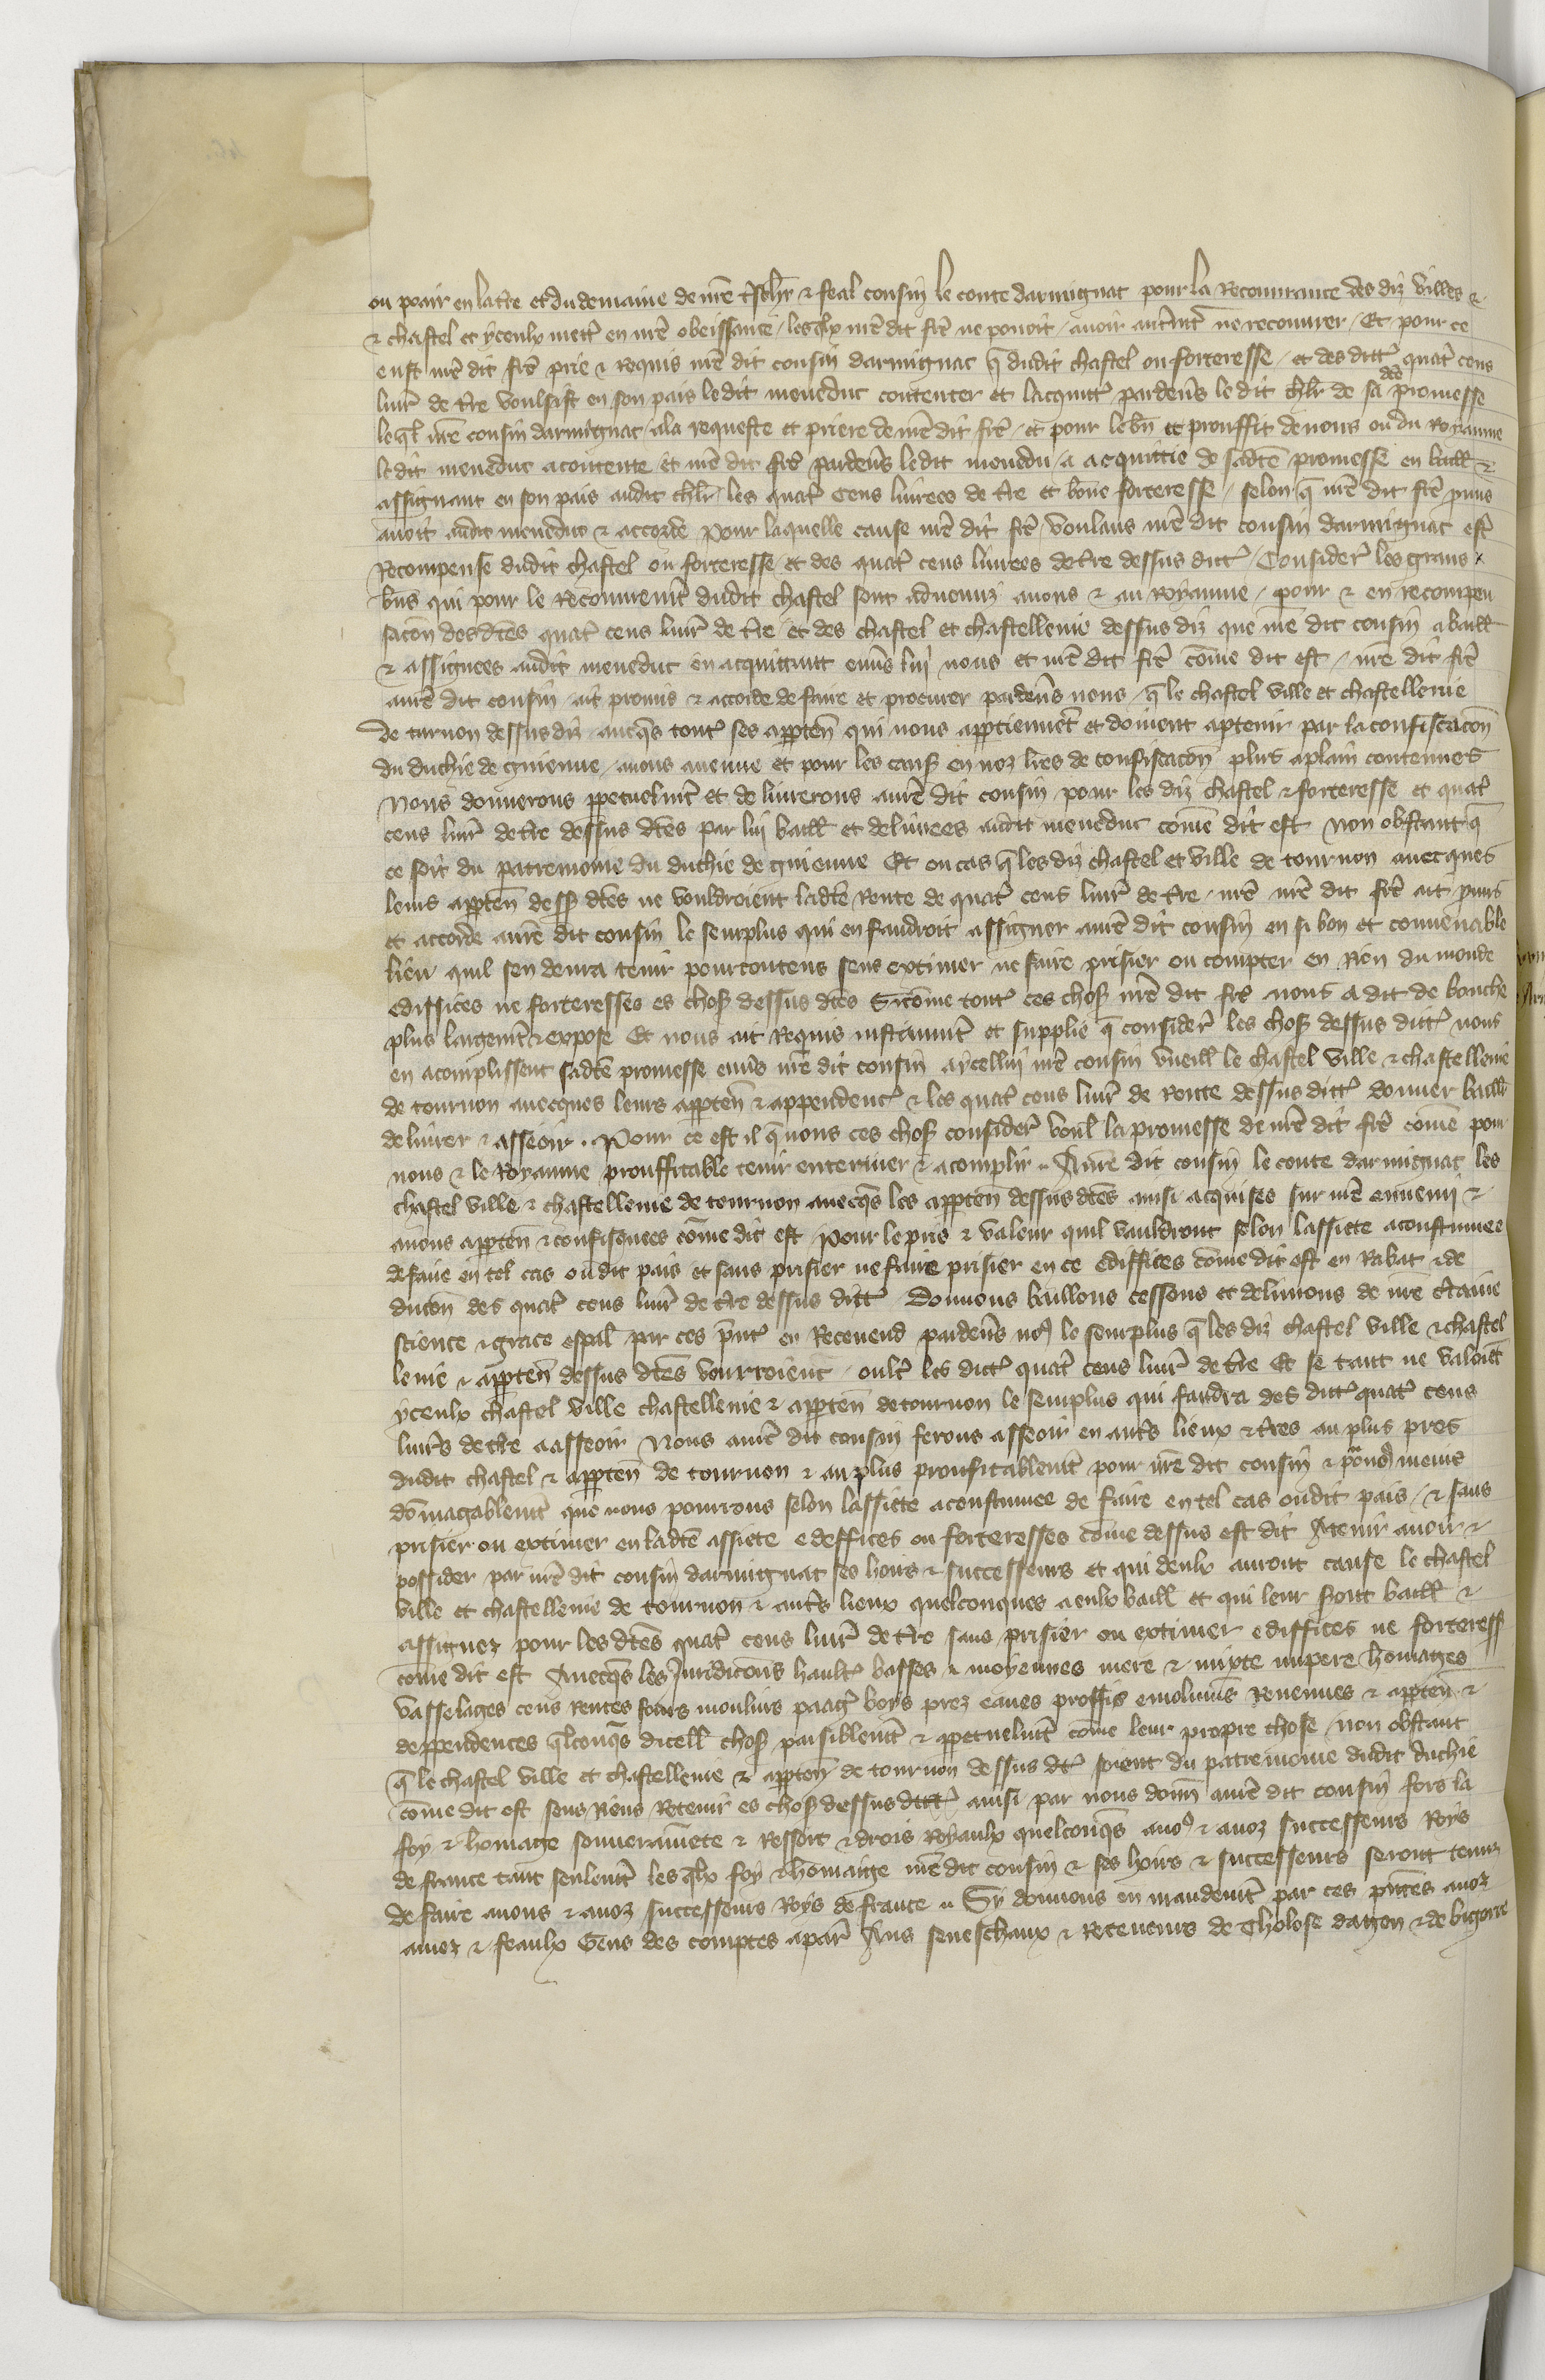 ou povir en la tre et du demaine de nre tschr & feal cousin le conte darmignac pour la Recouvrance des diz villes &
& chastel et yceulx mettr en nre obeissance / lesqlx nre dit frere ne povoit / avoir autrmt ne recouvrer / Et pour ce
eust nre dit fre prie & requis nre dit cousin darmignac q dudit chastel ou forteresse / et des dittes quatr cens
livr de tre voulsist en son pais ledit meneduc contenter et lacquitter pardevs le dit chlr de sa dce promesse
leql nre cousin darmignac / ala requeste et priere de nre dit fre / et pour le bn et prouffit de nous ou du Royaume
ledit meneduc a contente et nre dit fre pardevs ledit menedu / a acquittie de sadte promesse en baill &
assignant en son pais audit chlr / les quatr cens livrees de tre et bone forteresse / selon q nre dit fre pmis
avoit audit meneduc & accorde Pour laquelle cause nre dit fre / voulans nre dit cousin darmignac estr
Recompense dudit chastel ou forteresse / et des quatr cens livrees de tre dessus dictes / Considere les grans
bns qui pour le Recouvremt dudit chastel sont advenuz a nous & au Royaume / pour & en recompen
sacon desdtes quatr cens livr de tre et des chastel et chastellenie dessus diz que nre dit cousin a baill
& assignees audit meneduc en acquittant envs lui nous et nre dit fre come dit est / nre dit fre
a nre dit cousin / ait promis & accorde de faire et procurer pardevs nous / q le chastel ville et chastellenie
de turnon dessus diz / avecqs toutes ses apparten qui nous apptiennent et doivent aptenir par la confiscacon
du duchie de guienne / a nous avenue et pour les caus en noz lres de confiscacon plus aplain contenues
Nous donnerons ppetuelmt et delivrerons a nre dit cousin pour les diz chastel & forteresse et quatr
cens livr de tre dessus dtes par lui baill et delivrees audit meneduc come dit est Non obstant q
ce soit du patremoine du duchie de guienne Et ou cas q les diz chastel et ville de tournon avecques
leurs apparten dess dtes ne vouldroient ladte Rente de quatr cens livr de tre / nre nre dit fre ait pmis
et accorde a nre dit cousin le seurplus qui en faudroit assigner a nre dit cousin en si bon et convenable
lieu quil sen devra tenir pour contens sens extimer ne faire prisier ou compter en Rien du monde
ediffices ne forteresses es chos dessus dtes Si come toutes ces chos nre dit fre nous a dit de bouche
plus largemt & expose Et nous ait Requis instanmt et supplie q considere les chos dessus dictes nous
en acomplissent sadte promesse envs nre dit cousin a ycellui nre cousin vueill le chastel ville & chastellenie
de tournon avecques leurs apparten & appendences & les quatr cens livr de Rente dessus dictes donner baill
delivrer & asseoir . Pour ce est il q nous ces chos considere voul la promesse de nre dit fre come pour
nous & le Royaume prouffitable tenir enteriner & acomplir .. A nre dit cousin le conte darmignac les
chastel ville & chastellenie de tournon avecqs les apparten dessus dtes ainsi acquises sur nre ennemi &
a nous apparten & confisquees come dit est Pour le pris & valeur quil vauldront selon lassiete acoustumee
de faire en tel cas ou dit pais et sans prisier ne faire prisier en ce ediffices come dit est en Rabat & de
ducon des quatr cens livr de tre dessus dittes Donnons baillons cessons et delivrons de nre ctaine
science & grace espal par ces pntes en Retenend pardevs nos le seurplus q les diz chastel ville & chastel
lenie & apparten dessus dtes vourroient / oultr les dictes quatr cens livr de tre Et se tant ne valoient
yceulx chastel ville chastellenie & apparten de tournon le seurplus qui faudra des dictes quatr cens
livres de tre a asseoir Nous a nre dit cousin ferons asseoir en autrs lieux & tres au plus pres
dudit chastel & apparten de tournon & au plus proufitablemt pour nre dit cousin & pour nous meins
domagablemt que nous pourrons selon lassiete acoustumee de faire en tel cas oudit pais / & sans
prisier ou extimer en ladte assiete edeffices ou forteresses come dessus est dit Atenir avoir &
possider par nre dit cousin darmignac ses hoirs & successeurs et qui deulx auront cause le chastel
ville et chastellenie de tournon & autrs lieux quelconques a eulx baill et qui leur sront baill &
assignez pour les dtes quatr cens livr de tre sans prisier ou extimer ediffices ne forteress
come dit est Avecqs les Juridicons haultes basses & moyennes mere & mixte impere homages
vasselages cens rentes fours moulins paages boys prez eaues proffis emolumns Revenues & apparten &
deppendences qlconqs dicell chos paisiblemt & ppetuelmt come leur propre chose / non obstant
q le chastel ville et chastellenie & apparten de tournon dessus dtes soient du patremoine dudit duchie
come dit est sens Riens Retenir es chos dessus dittes ainsi par nous donn a nre dit cousin fors la
foy & homage souverainnete & Ressort & drois Royaulx quelconqs a nos & a noz successeurs Roys
de france tant seulemt lesqlx foy & homaige nre dit cousin & ses hoirs & successeurs seront tenuz
de faire a nous & a noz successeurs Roys de france .. Sy donnons en mandemt par ces pntes a noz
amez & feaulx Gens des comptes apar Aus seneschaux & Receveurs de Tholose dagen & de bigorre